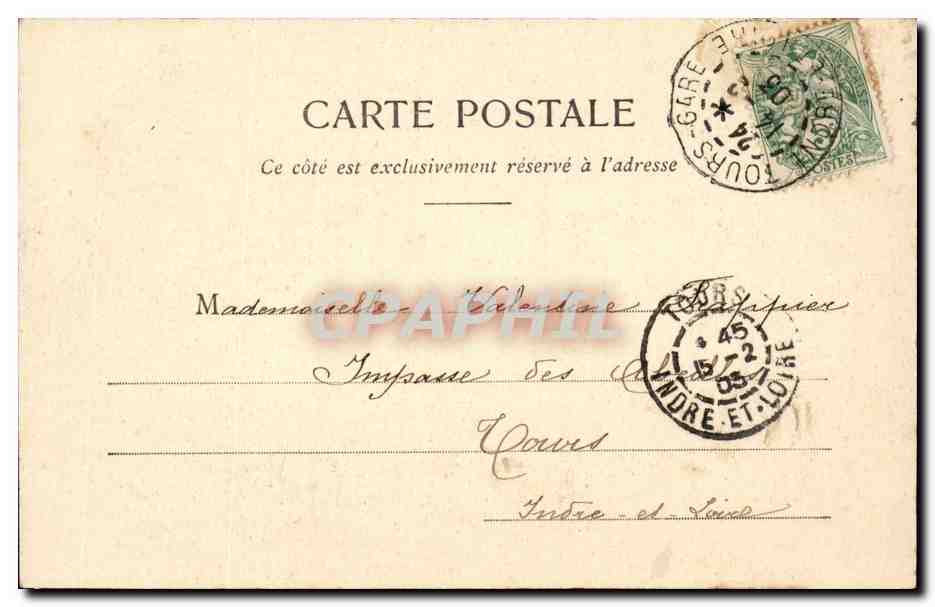 CARTE POSTALE
Ce côté est exclusivement réservé à l'adresse
TOURS-GARE
24
03
POSTES
Mademoiselle Valentine
CPAPHIL
Impasse des
Tours
Indre-et-Loire
TOURS
45
15 -2
03
INDRE-ET-LOIRE